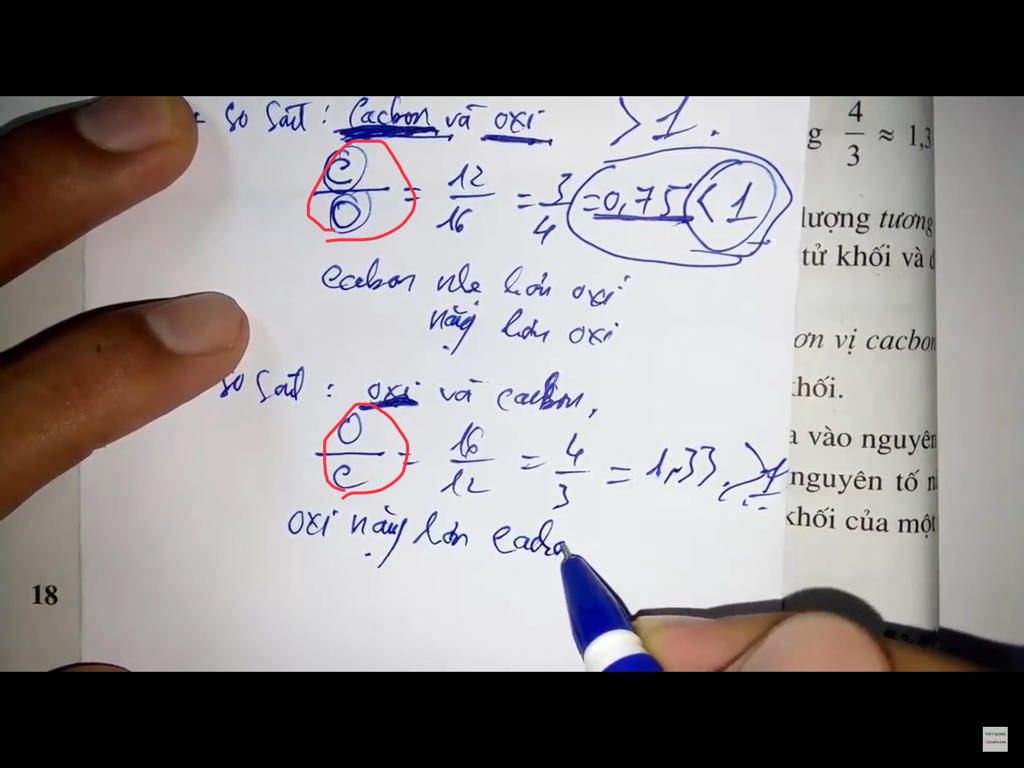 + so sát : cacbon và oxi
> 1 .
C/O = 12/16 = 3/4 = 0,75 < 1
cacbon nhẹ hơn oxi
nặng hơn oxi
so sát : oxi và cacbon,
O/C = 16/12 = 4/3 = 1,33 > 1
oxi nặng hơn cacbo
18
g 4/3 ≈ 1,3
lượng tương
tử khối và đ
ơn vị cacbon
khối.
a vào nguyên
nguyên tố n
khối của một